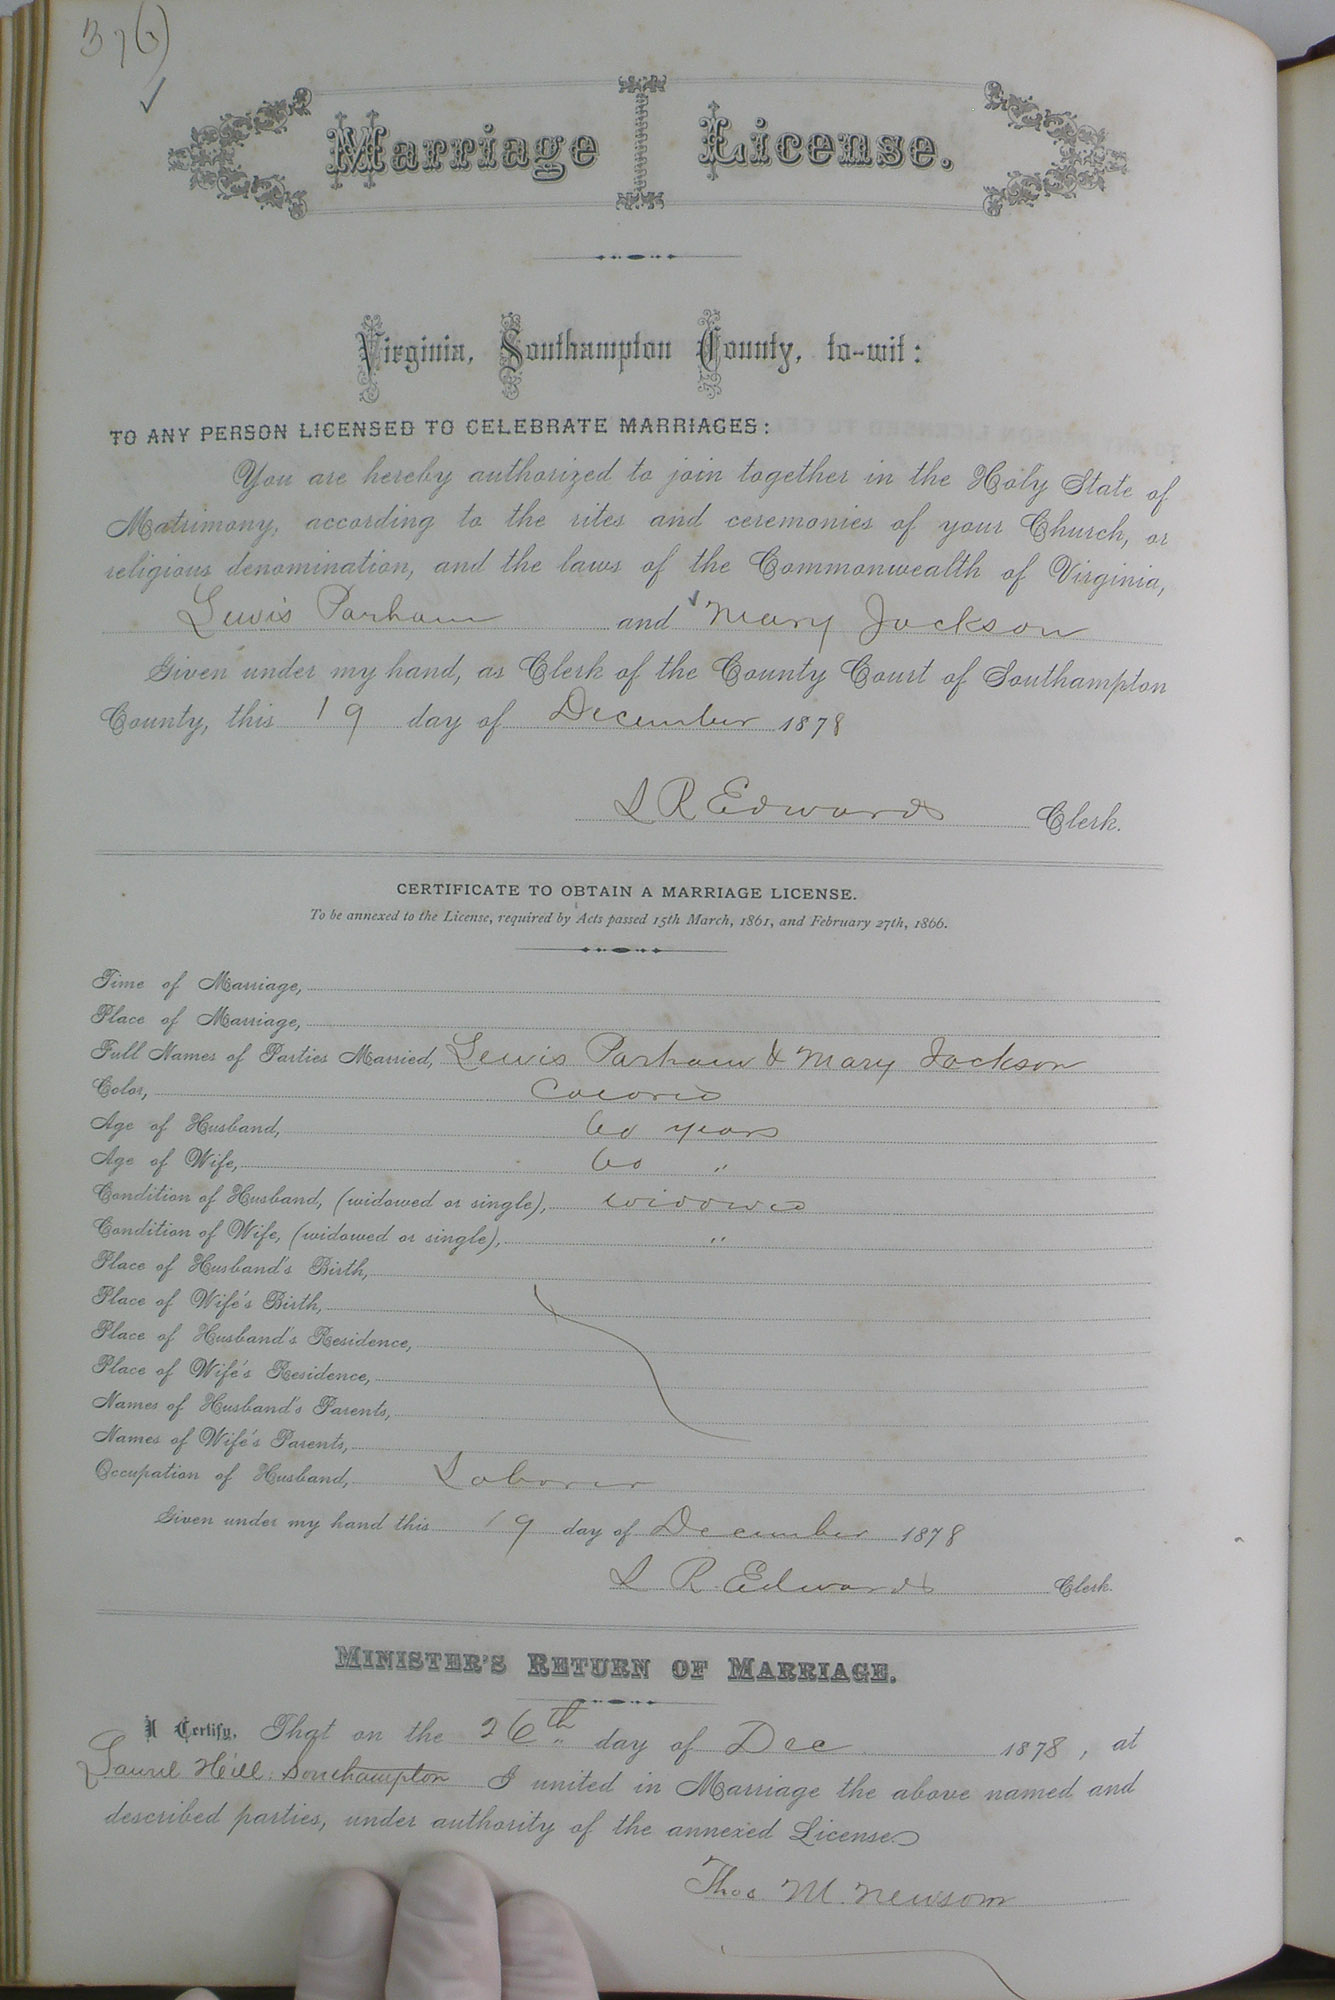 376
Marriage License.
Virginia, Southampton County, to-wit:
TO ANY PERSON LICENSED TO CELEBRATE MARRIAGES:
You are hereby authorized to join together in the Holy State of
Matrimony, according to the rites and ceremonies of your Church, or
religious denomination, and the laws of the Commonwealth of Virginia,
Lewis Parham and Mary Jackson
Given under my hand, as Clerk of the County Court of Southampton
County, this 19 day of December 1878
L R Edwards Clerk.
CERTIFICATE TO OBTAIN A MARRIAGE LICENSE.
To be annexed to the License, required by Acts passed 15th March, 1861, and February 27th, 1866.
Time of Marriage,
Place of Marriage,
Full Names of Parties Married, Lewis Parham & Mary Jackson
Color, Colored
Age of Husband, 60 years
Age of Wife, 60 "
Condition of Husband, (widowed or single), widowed
Condition of Wife, (widowed or single), "
Place of Husband's Birth,
Place of Wife's Birth,
Place of Husband's Residence,
Place of Wife's Residence,
Names of Husband's Parents,
Names of Wife's Parents,
Occupation of Husband, Laborer
Given under my hand this 19 day of December 1878
L R Edwards Clerk.
MINISTER'S RETURN OF MARRIAGE.
I Certify, That on the 26th day of Dec 1878, at
Laurel Hill Southampton I united in Marriage the above named and
described parties, under authority of the annexed License
Thos. M. Newsom